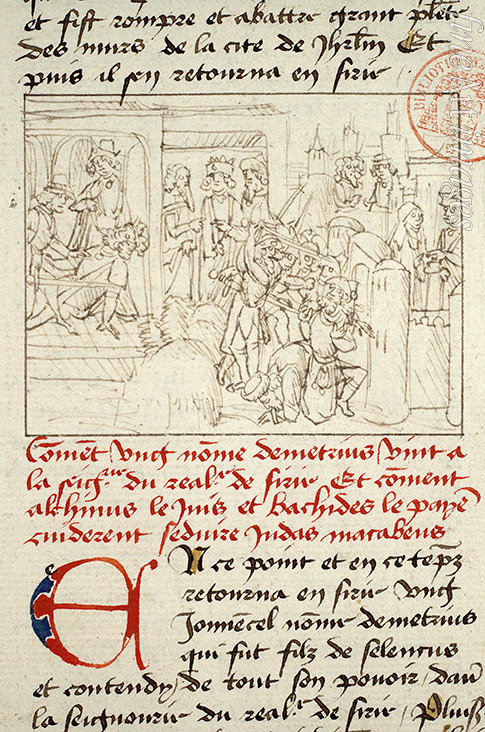 et fist rompre et abattre grant plete
des murs de la cite de Jhrlm Et
puis il sen retourna en sirie
BIBLIOT
fineartimages
Coment Ung nome demetrius vint a
la seigrie du realme de sirie Et coment
alchinus le Juis et bachides le payen
cuiderent seduire Judas macabeus
e
EN ce point et en ce temps
retourna en sirie Ung
Jouuencel nome demetrius
qui fut filz de seleucus
et contendy de tout son pouoir dauoir
la seignourie du realme de sirie